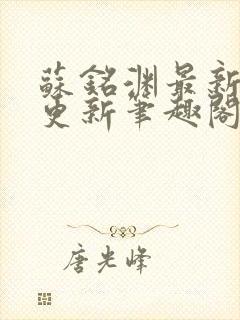 蘇銘淵最新
更新筆趣閣
唐光峰